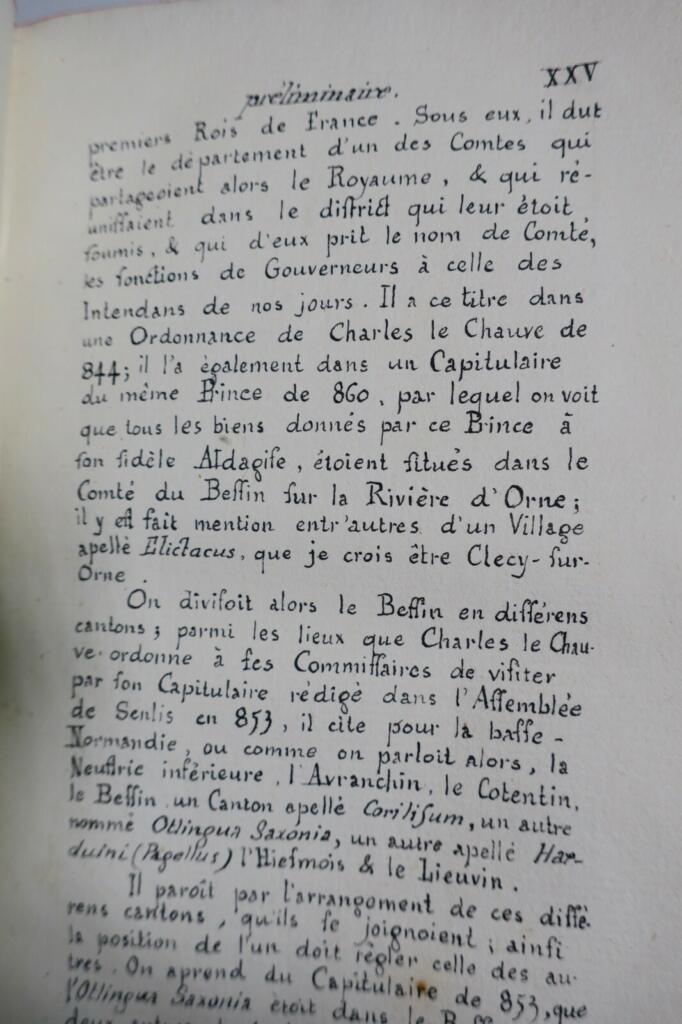 préliminaire. XXV
premiers Rois de France. Sous eux, il dut
être le département d'un des Comtes qui
partageoient alors le Royaume, & qui ré-
uniſſaient dans le diſtrict qui leur étoit
ſoumis, & qui d'eux prit le nom de Comté,
les fonctions de Gouverneurs à celle des
Intendans de nos jours. Il a ce titre dans
une Ordonnance de Charles le Chauve de
844; il l'a également dans un Capitulaire
du même Prince de 860, par lequel on voit
que tous les biens donnés par ce Prince à
ſon fidèle Aldagiſe, étoient ſitués dans le
Comté du Beſſin ſur la Rivière d'Orne;
il y eſt fait mention entr'autres d'un Village
apellé Elictacus, que je crois être Clecy-ſur-
Orne.
On diviſoit alors le Beſſin en différens
cantons; parmi les lieux que Charles le Chau-
ve ordonne à ſes Commiſſaires de viſiter
par ſon Capitulaire rédigé dans l'Aſſemblée
de Senlis en 853, il cite pour la baſſe-
Normandie, ou comme on parloit alors, la
Neuſtrie inférieure, l'Avranchin, le Cotentin,
le Beſſin un Canton apellé Coriliſum, un autre
nommé Otlingua Saxonia, un autre apellé Har-
duini (Pagellus) l'Hieſmois & le Lieuvin.
Il paroît par l'arrangoment de ces diffé-
rens cantons, qu'ils ſe joignoient; ainſi
la position de l'un doit règler celle des au-
tres. On aprend du Capitulaire de 853, que
l'Otlingua Saxonia étoit dans le